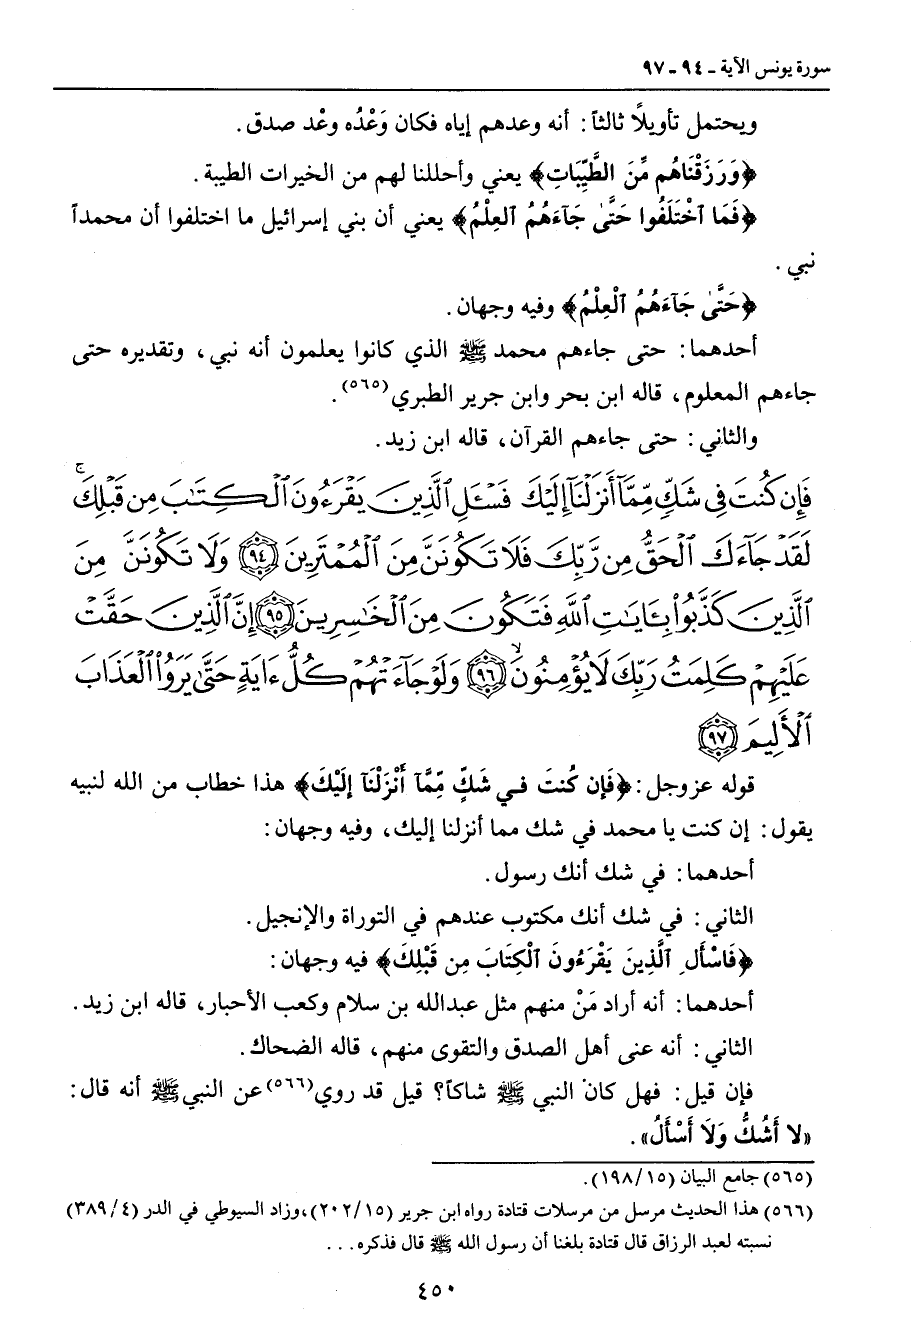 سورة يونس الآية ـ ٩٤ ـ ٩٧
ويحتمل تأويلاً ثالثاً: أنه وعدهم إياه فكان وَعْدُه وعْد صدق.
﴿وَرَزَقْنَاهُم مِّنَ الطَّيِّبَاتِ﴾ يعني وأحللنا لهم من الخيرات الطيبة.
﴿فَمَا اخْتَلَفُوا حَتَّى جَآءَهُمُ العِلْمُ﴾ يعني أن بني إسرائيل ما اختلفوا أن محمداً
نبي.
﴿حَتَّى جَآءَهُمُ الْعِلْمُ﴾ وفيه وجهان.
أحدهما: حتى جاءهم محمد ﷺ الذي كانوا يعلمون أنه نبي، وتقديره حتى
جاءهم المعلوم، قاله ابن بحر وابن جرير الطبري(٥٦٥).
والثاني: حتى جاءهم القرآن، قاله ابن زيد.
فَإِن كُنتَ فِي شَكٍّ مِّمَّآ أَنزَلْنَآ إِلَيْكَ فَسْـَٔلِ ٱلَّذِينَ يَقْرَءُونَ ٱلْكِتَـٰبَ مِن قَبْلِكَ ۚ
لَقَدْ جَآءَكَ ٱلْحَقُّ مِن رَّبِّكَ فَلَا تَكُونَنَّ مِنَ ٱلْمُمْتَرِينَ ﴿٩٤﴾ وَلَا تَكُونَنَّ مِنَ
ٱلَّذِينَ كَذَّبُوا۟ بِـَٔايَـٰتِ ٱللَّهِ فَتَكُونَ مِنَ ٱلْخَـٰسِرِينَ ﴿٩٥﴾ إِنَّ ٱلَّذِينَ حَقَّتْ
عَلَيْهِمْ كَلِمَتُ رَبِّكَ لَا يُؤْمِنُونَ ۙ ﴿٩٦﴾ وَلَوْ جَآءَتْهُمْ كُلُّ ءَايَةٍ حَتَّىٰ يَرَوُا۟ ٱلْعَذَابَ
ٱلْأَلِيمَ ﴿٩٧﴾
قوله عز وجل: ﴿فَإِن كُنتَ فِي شَكٍّ مِّمَّآ أَنْزَلْنَآ إِلَيْكَ﴾ هذا خطاب من الله لنبيه
يقول: إن كنت يا محمد في شك مما أنزلنا إليك، وفيه وجهان:
أحدهما: في شك أنك رسول.
الثاني: في شك أنك مكتوب عندهم في التوراة والإنجيل.
﴿فَاسْأَلِ الَّذِينَ يَقْرَءُونَ الْكِتَابَ مِن قَبْلِكَ﴾ فيه وجهان:
أحدهما: أنه أراد مَنْ منهم مثل عبدالله بن سلام وكعب الأحبار، قاله ابن زيد.
الثاني: أنه عنى أهل الصدق والتقوى منهم، قاله الضحاك.
فإن قيل: فهل كان النبي ﷺ شاكاً؟ قيل قد روي(٥٦٦) عن النبي ﷺ أنه قال:
«لا أَشُكُّ وَلَا أَسْأَلُ».
(٥٦٥) جامع البيان (١٩٨/١٥).
(٥٦٦) هذا الحديث مرسل من مرسلات قتادة رواه ابن جرير (٢٠٢/١٥)، وزاد السيوطي في الدر (٣٨٩/٤)
نسبته لعبد الرزاق قال قتادة بلغنا أن رسول الله ﷺ قال فذكره...
٤٥٠